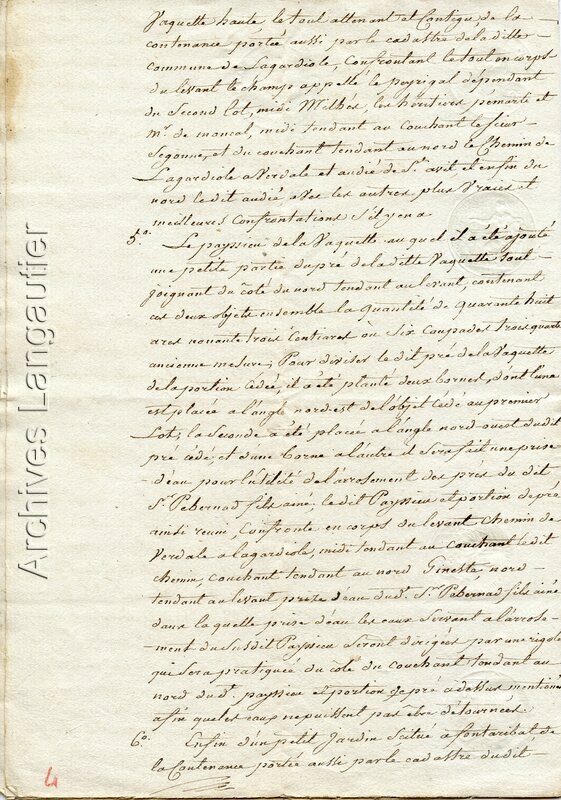 Vaquette haute le tout attenant et contigu, de la
contenance portée aussi par le cadastre de la ditte
commune de Lagardiole, Confrontant le tout en corps
du levant le champ appellé le peyrigal dépendant
du Second lot, midi Milhes, les héritiers pemarte et
Mr. de mancal, midi tendant au Couchant le Sieur
Segonne, et du couchant tendant au nord le Chemin de
Lagardiole a Verdale et audié de St. avit et enfin du
nord le dit audié avec les autres plus Vraies et
meilleures Confrontations S'il y en a
5o. Le payssieu de la Vaquette au quel il a été ajouté
une petite partie du pré de la ditte Vaquette tout
Joignant du côté du nord tendant au levant, contenant
ces deux objets ensemble la quantité de quarante huit
ares nonante trois Centiares ou Six Coupades trois quarts
ancienne mesure; Pour diviser le dit pré de la Vaquette
de la portion Cédée, il a été planté deux bornes, dont l'une
est placée a l'angle nord-est de l'objet Cédé au premier
Lot; la Seconde a été placée a l'angle nord-ouest du dit
pré cédé, et d'une borne a l'autre il Sera fait une prise
d'eau pour l'utilité de l'arrosement des prés du dit
Sr. Pebernad fils ainé. le dit Payssieu et portion de pré
ainsi reuni, Confronte en corps du levant Chemin de
Verdale a lagardiole, midi tendant au Couchant le dit
chemin, couchant tendant au nord Gineste, nord
tendant au levant prise d'eau du dt. Sr. Pebernad fils ainé
dans la quelle prise d'eau les eaux Servant a l'arrose-
ment du Susdit Payssieu Seront dirigées par une rigole
qui Sera pratiquée du côté du Couchant tendant au
nord du dt. payssieu et portion de pré a dessus mentionné
afin que les eaux ne puissent pas être détournées.
6o. Enfin d'un petit Jardin Scitué a fontaribat de
la Contenance portée aussi par le cadastre du dit
4
Archives Langautier